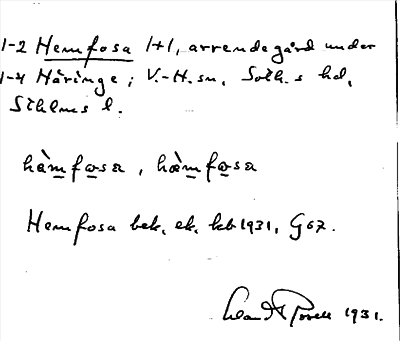 1-2 Hemfosa 1+1, arrendegård under
1-4 Häringe; V.-H. sn, Soth.s hd,
Sthlms l.
hàmfosa, hæ̀mfosa
Hemfosa bek. ek. kb 1931, G67.
1931.